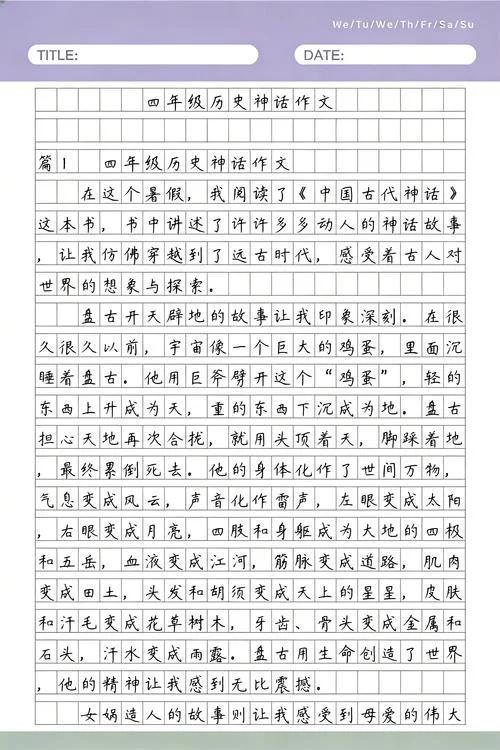 We/Tu/We/Th/Fr/Sa/Su
TITLE:
DATE:
四年级历史神话作文
篇1 四年级历史神话作文
在这个暑假，我阅读了《中国古代神话》
这本书，书中讲述了许许多多动人的神话故事
，让我仿佛穿越到了远古时代，感受着古人对
世界的想象与探索。
盘古开天辟地的故事让我印象深刻。在很
久很久以前，宇宙像一个巨大的鸡蛋，里面沉
睡着盘古。他用巨斧劈开这个“鸡蛋”，轻的
东西上升成为天，重的东西下沉成为地。盘古
担心天地再次合拢，就用头顶着天，脚踩着地
，最终累倒死去。他的身体化作了世间万物，
气息变成风云，声音化作雷声，左眼变成太阳
，右眼变成月亮，四肢和身躯成为大地的四极
和五岳，血液变成江河，筋脉变成道路，肌肉
变成田土，头发和胡须变成天上的星星，皮肤
和汗毛变成花草树木，牙齿、骨头变成金属和
石头，汗水变成雨露。盘古用生命创造了世界
，他的精神让我感到无比震撼。
女娲造人的故事则让我感受到母爱的伟大